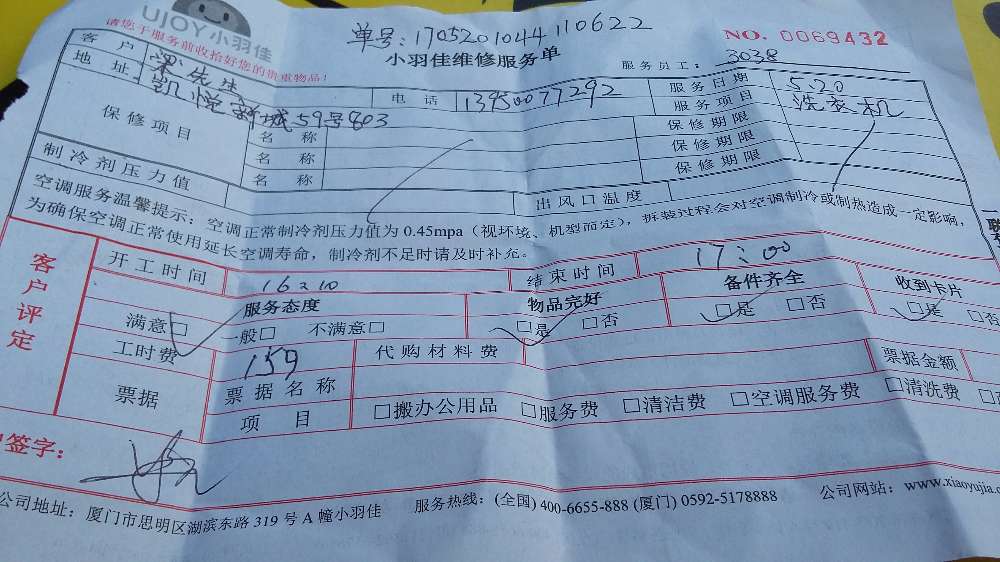 UJOY小羽佳
请您于服务前收拾好您的贵重物品!
单号:1705201044110622
小羽佳维修服务单
NO. 0069432
服务员工: 3038
客户 先生 电话 13950077292 服务日期 5.20
地址 凯悦新城59号803 服务项目 洗衣机
保修项目 名称 保修期限
名称 保修期限
名称 保修期限
制冷剂压力值 出风口温度
空调服务温馨提示:空调正常制冷剂压力值为 0.45mpa(视环境、机型而定),拆装过程会对空调制冷或制热造成一定影响,
为确保空调正常使用延长空调寿命,制冷剂不足时请及时补充。
客户评定
开工时间 16:10 结束时间 17:00
服务态度 物品完好 备件齐全 收到卡片
满意□ 一般□ 不满意□ □是 □否 □是 □否 □是 □否
工时费 159 代购材料费
票据 票据名称 票据金额
项目 □搬办公用品 □服务费 □清洁费 □空调服务费 □清洗费
签字:
公司地址:厦门市思明区湖滨东路 319 号 A 幢小羽佳 服务热线:(全国) 400-6655-888 (厦门) 0592-5178888 公司网站:www.xiaoyujia.c